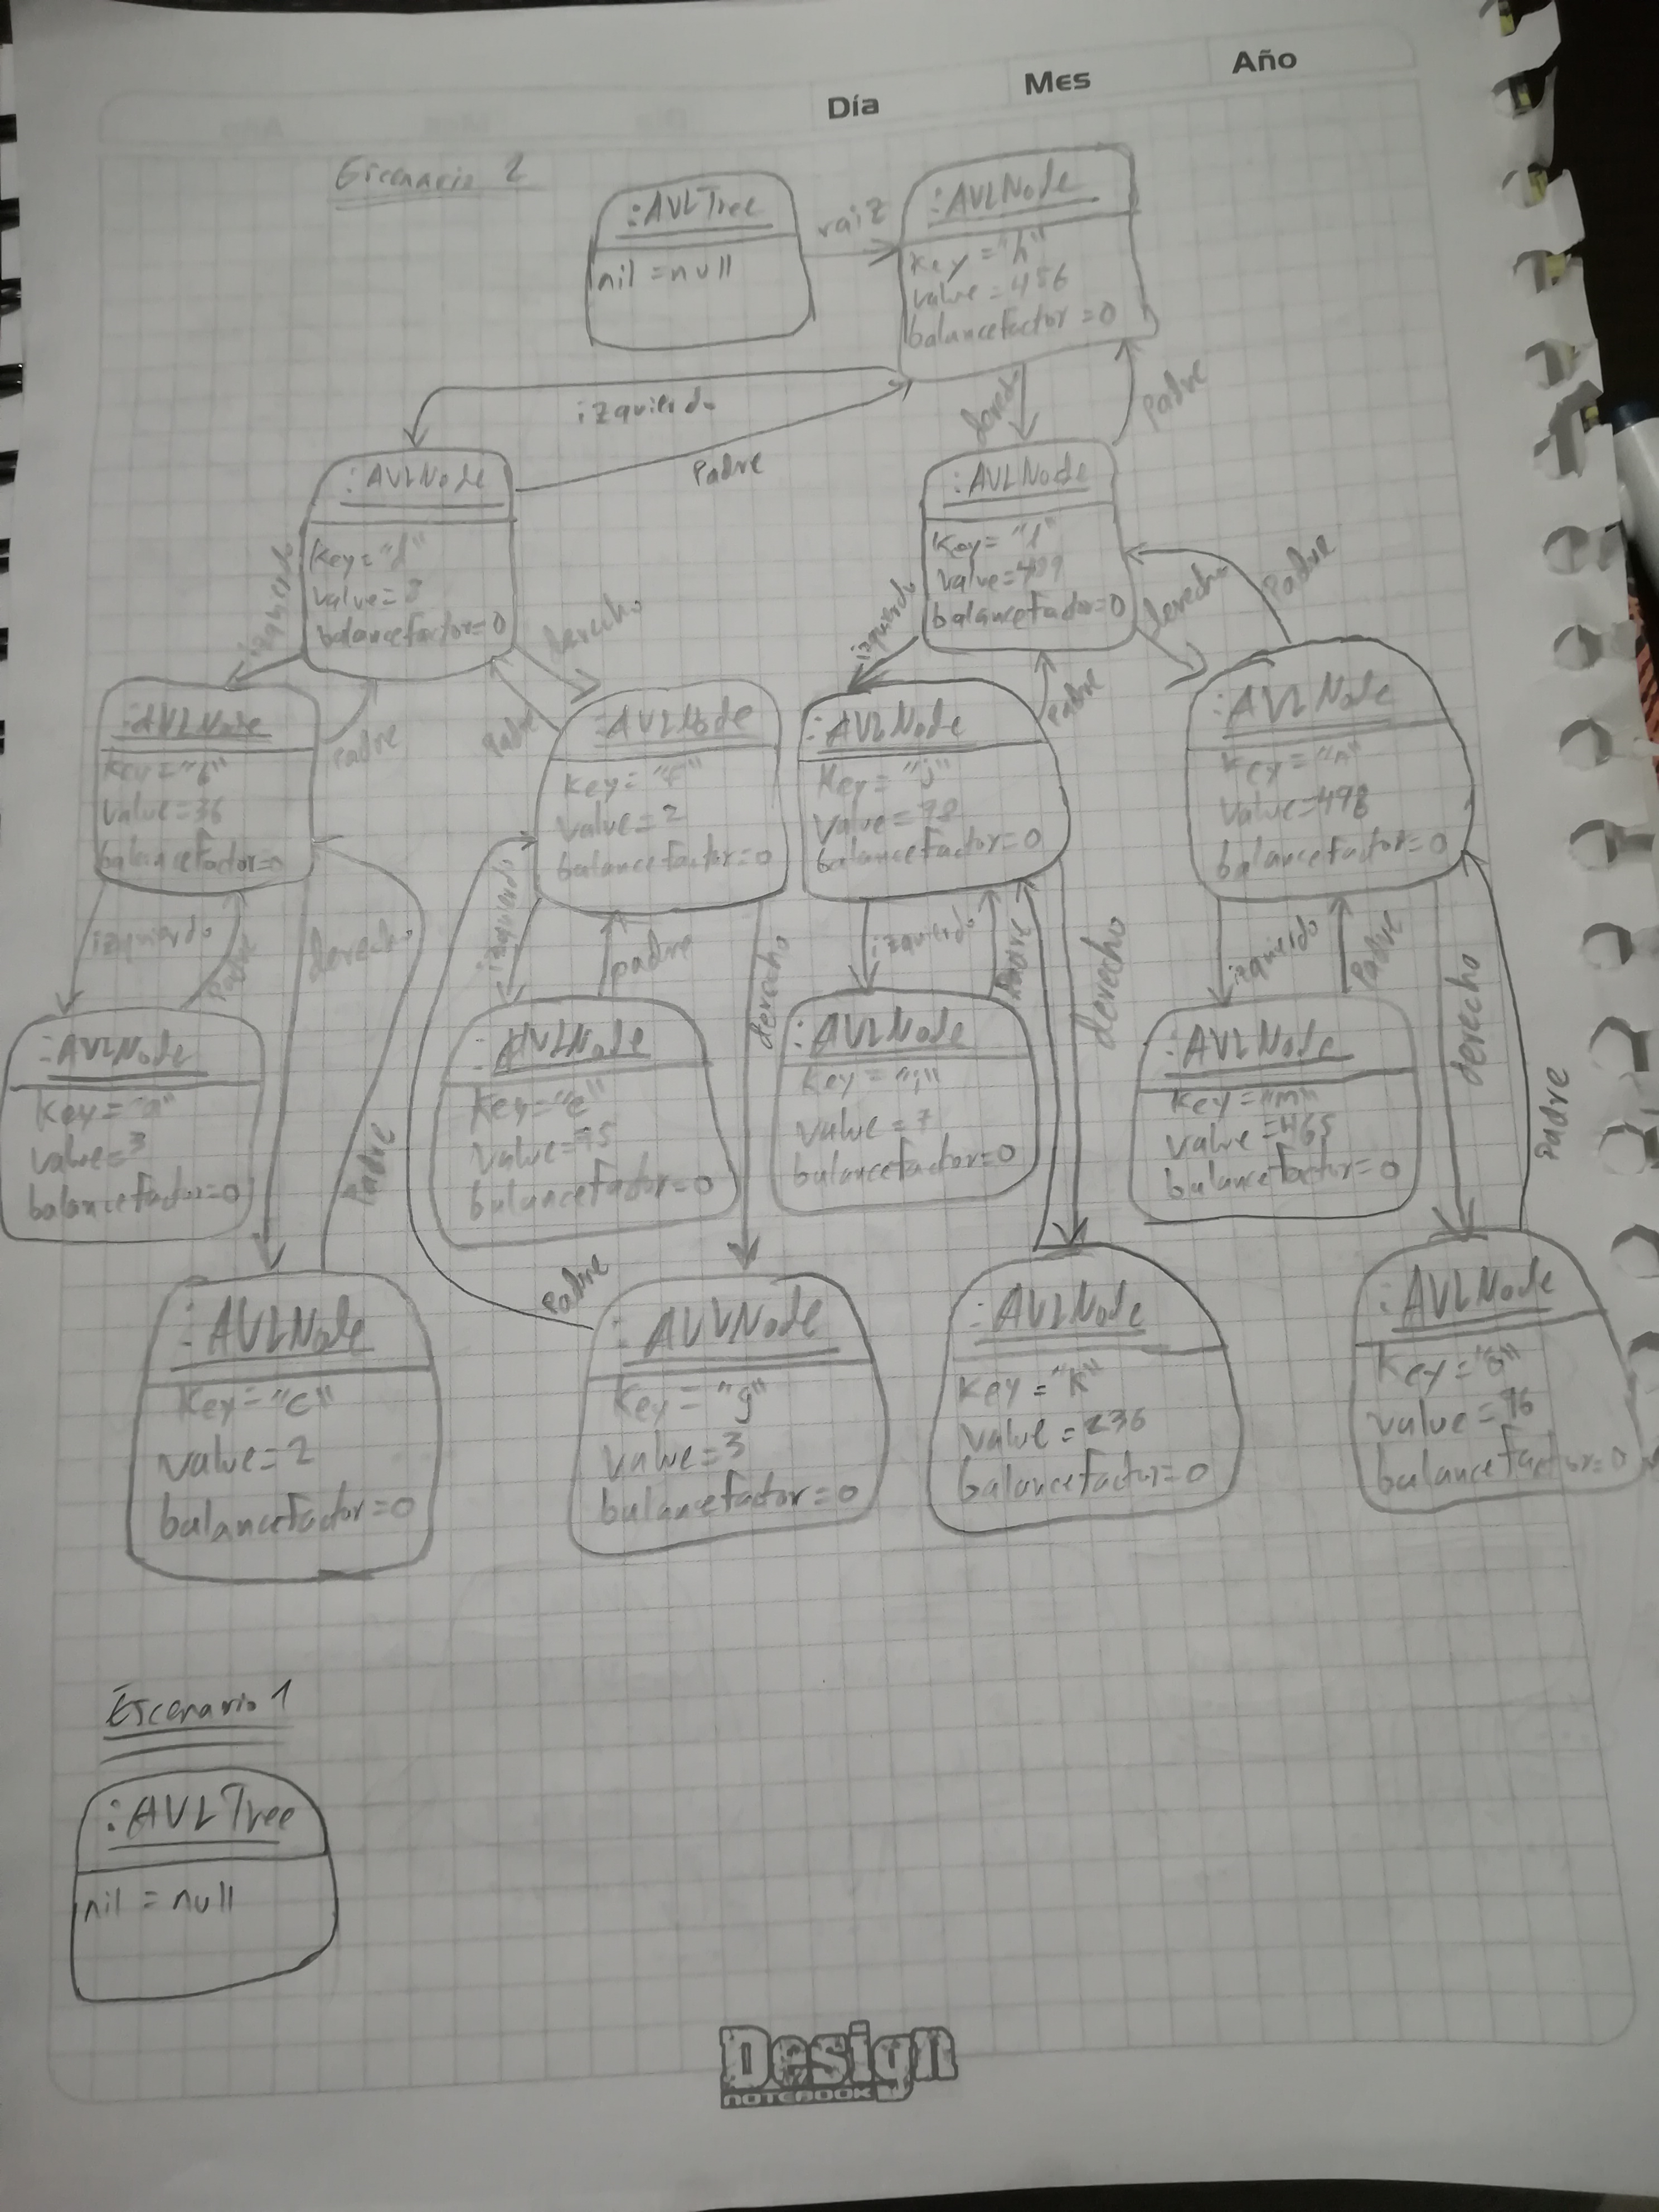 Día Mes Año
Escenario 2
:AVLTree
nil = null
raiz
:AVLNode
key = "h"
value = 456
balancefactor = 0
izquierdo
Padre
derecho
Padre
:AVLNode
key = "d"
value =
balancefactor = 0
:AVLNode
key = "l"
value =
balancefactor = 0
izquierdo
Padre
derecho
Padre
izquierdo
Padre
derecho
Padre
:AVLNode
key =
value = 36
balancefactor =
:AVLNode
key = "f"
value = 2
balancefactor = 0
:AVLNode
key = "j"
value = 98
balancefactor = 0
:AVLNode
key = "n"
value = 498
balancefactor = 0
izquierdo
Padre
derecho
Padre
izquierdo
padre
derecho
Padre
izquierdo
Padre
derecho
izquierdo
Padre
derecho
Padre
:AVLNode
key = "a"
value = 3
balancefactor = 0
:AVLNode
key = "e"
value =
balancefactor = 0
:AVLNode
key = "i"
value = 7
balancefactor = 0
:AVLNode
key = "m"
value = 465
balancefactor = 0
:AVLNode
key = "c"
value = 2
balancefactor = 0
:AVLNode
key = "g"
value = 3
balancefactor = 0
:AVLNode
key = "k"
value = 236
balancefactor = 0
:AVLNode
key = "o"
value = 96
balancefactor = 0
Escenario 1
:AVLTree
nil = null
Design
NOTEBOOK